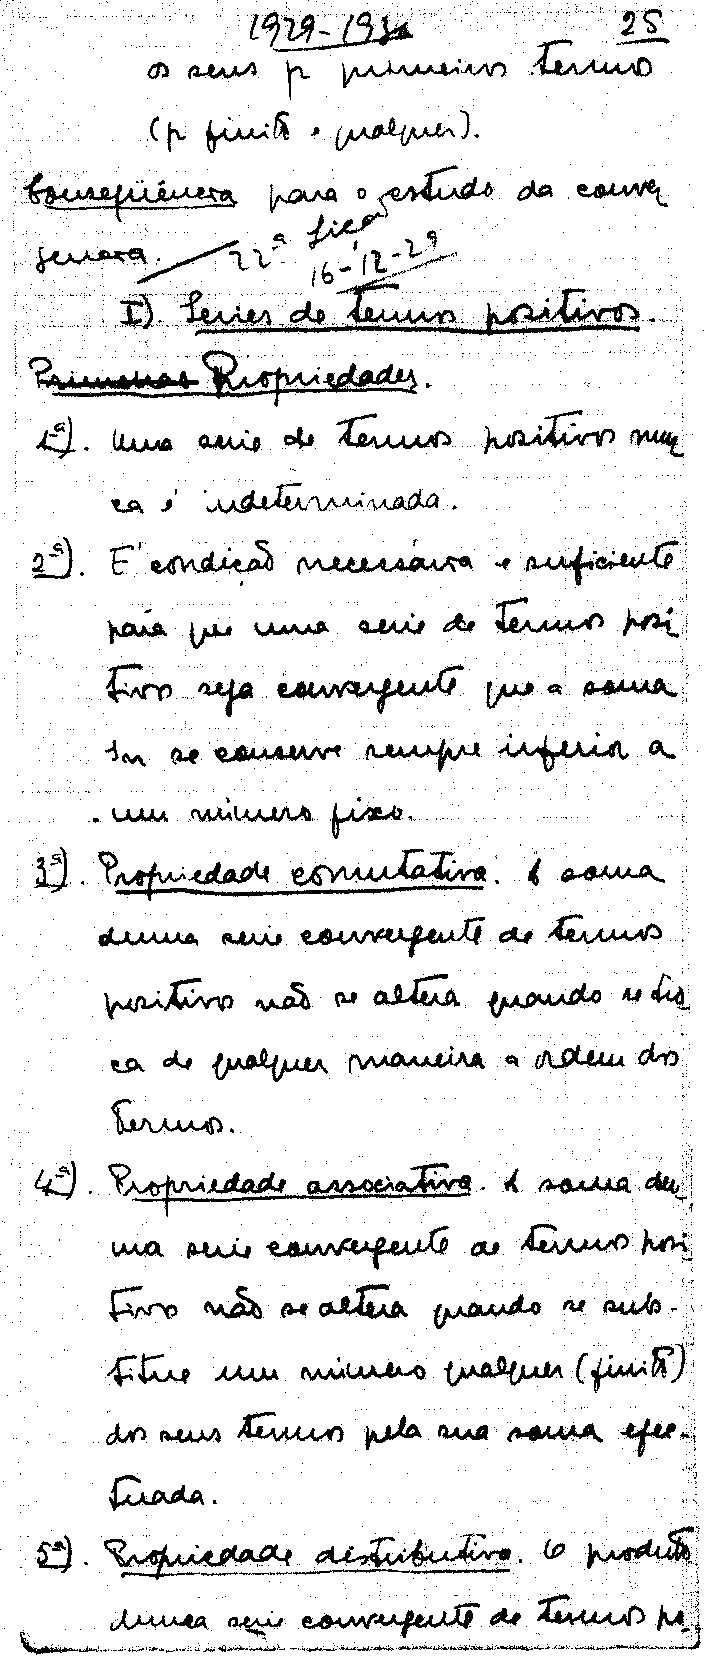 1929-1930 25
os seus p primeiros termos
(p finito e qualquer).
Conseqüência para o estudo da conver
gencia. 22ª Lição
16-12-29
I) Series de termos positivos.
Primeiras Propriedades.
1ª). Uma serie de termos positivos nun
ca é indeterminada.
2ª). É condição necessária e suficiente
para que uma serie de termos posi
tivos seja convergente que a soma
Sn se conserve sempre inferior a
um número fixo.
3ª). Propriedade comutativa. A soma
duma serie convergente de termos
positivos não se altera quando se tro
ca de qualquer maneira a ordem dos
termos.
4ª). Propriedade associativa. A soma du
ma serie convergente de termos posi
tivos não se altera quando se subs-
titue um número qualquer (finito)
dos seus termos pela sua soma efec-
tuada.
5ª). Propriedade distributiva. O produto
duma serie convergente de termos po